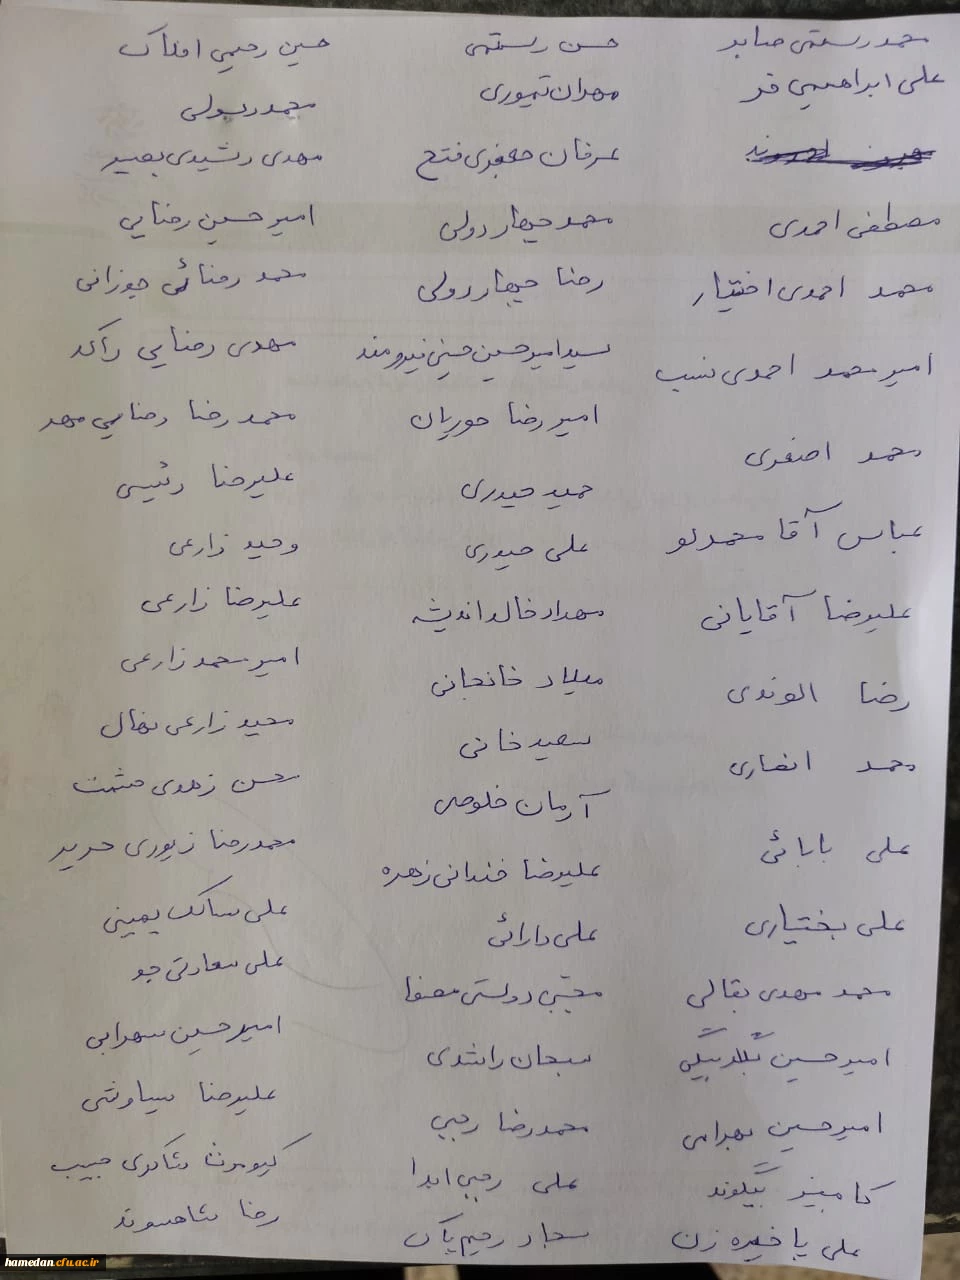 محمد رستمی صابر
علی ابراهیمی فر
مصطفی احمدی
محمد احمدی اختیار
امیر محمد احمدی نسب
محمد اصغری
عباس آقا محمدلو
علیرضا آقایانی
رضا الوندی
محمد انصاری
علی بابائی
علی بختیاری
محمد مهدی بقالی
امیرحسین بگلربیگی
امیرحسین بهرامی
کامبیز بیگوند
علی پا خیره زن
حسن رستمی
مهران تیموری
عرفان جعفری فتح
محمد چهاردولی
رضا چهاردولی
سید امیرحسین حسینی نیرومند
امیررضا حوریان
حمید حیدری
علی حیدری
مهراد خالد اندیشه
میلاد خانجانی
سعید خانی
آرمان خلوصی
علیرضا خندانی زهره
علی دارائی
مجتبی دولتی مصفا
سبحان راشدی
محمدرضا رجبی
علی رجبی
سجاد رحیم پاک
حسین رحیمی املاک
محمد رسولی
مهدی رشیدی بصیر
امیرحسین رضایی
محمد رضائی جوزانی
مهدی رضایی راکد
محمد رضا رضایی مهر
علیرضا رئیسی
وحید زارعی
علیرضا زارعی
امیر محمد زارعی
مجید زارعی نهال
حسن زهدی حشمت
محمدرضا زیوری
علی سالک یمینی
علی سعادتی جو
امیرحسین سهرابی
علیرضا سیاوشی
کیومرث شاکری حبیب
رضا شاهسوند
hamedan.cfu.ac.ir